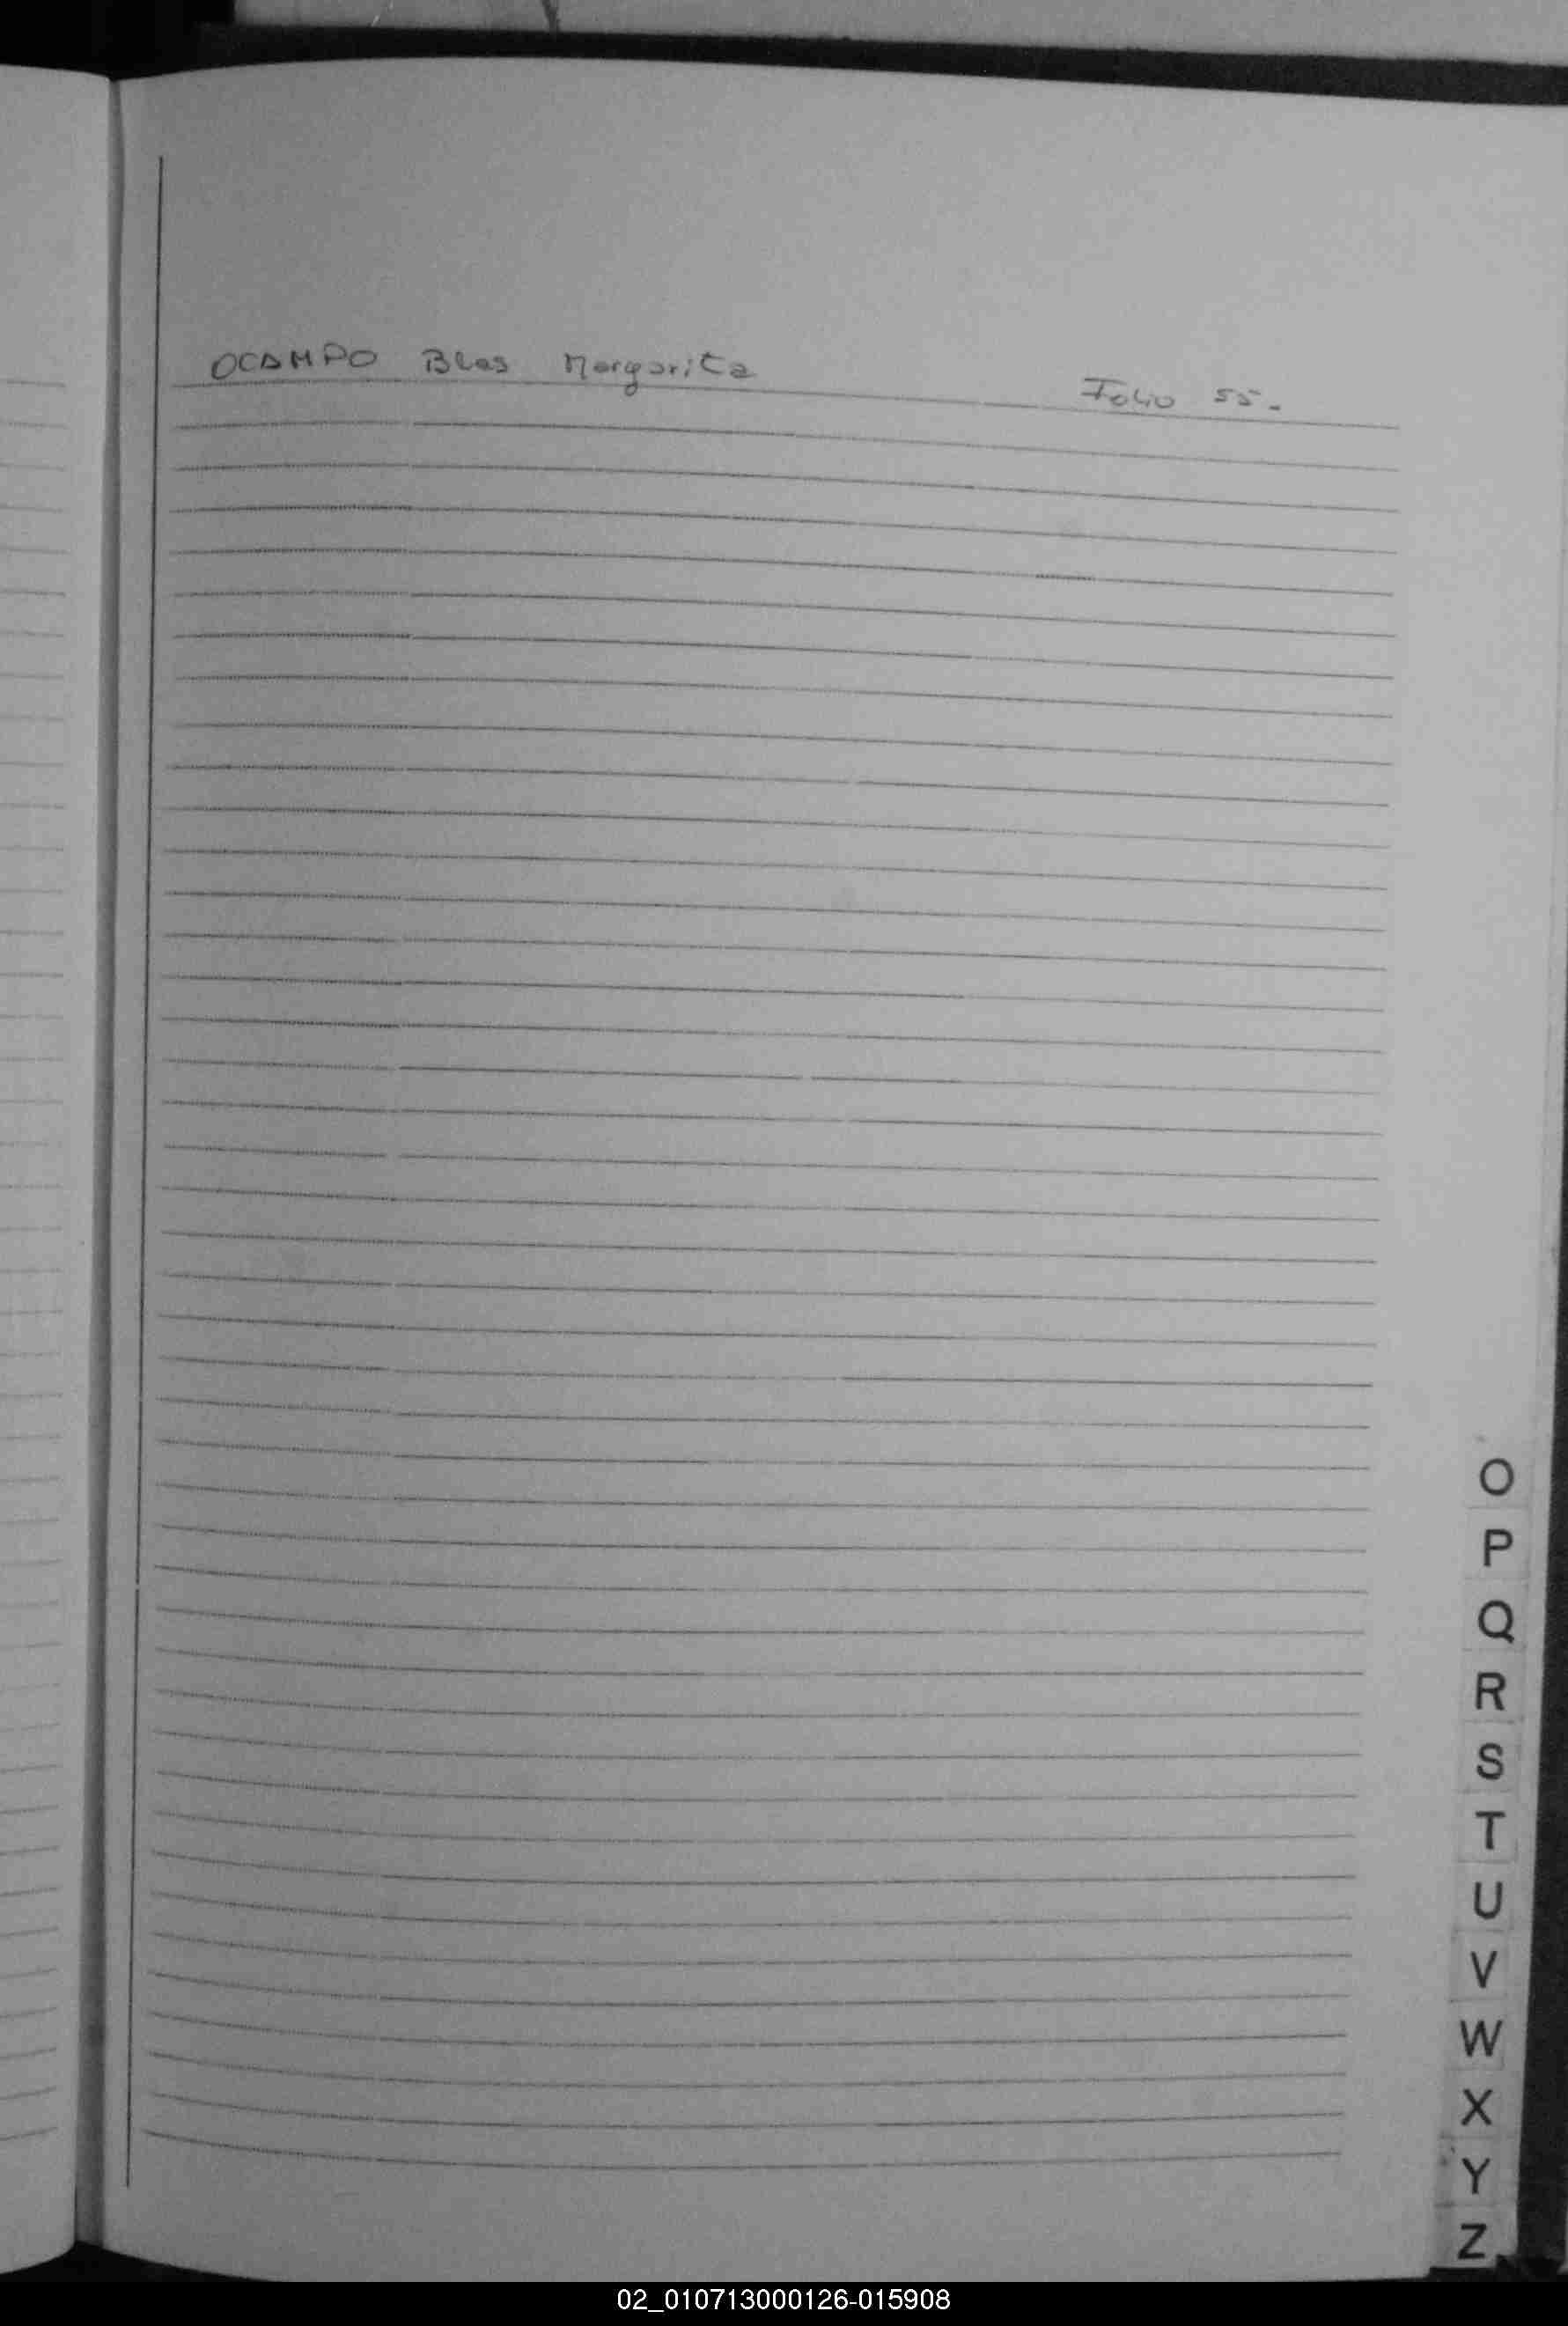 OCAMPO Blas Margarita Folio 55.-
O
P
Q
R
S
T
U
V
W
X
Y
Z
02_010713000126-015908